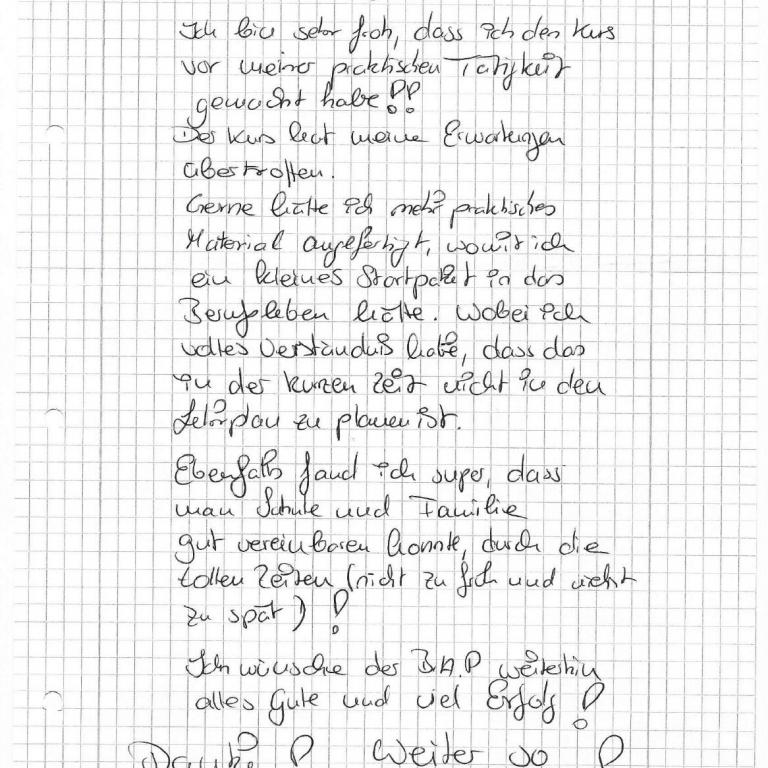 Ich bin sehr froh, dass ich den Kurs
vor meiner praktischen Tätigkeit
gemacht habe!!
Der Kurs hat meine Erwartungen
übertroffen.
Gerne hätte ich mehr praktisches
Material angefertigt, womit ich
ein kleines Startpaket in das
Berufsleben hätte. Wobei ich
volles Verständniß habe, dass das
in der kurzen Zeit nicht in den
Lehrplan zu planen ist.
Ebenfalls fand ich super, dass
man Schule und Familie
gut vereinbaren konnte, durch die
tollen Zeiten (nicht zu früh und nicht
zu spät)!
Ich wünsche der B.A.P weiterhin
alles Gute und viel Erfolg!
Danke! Weiter so!